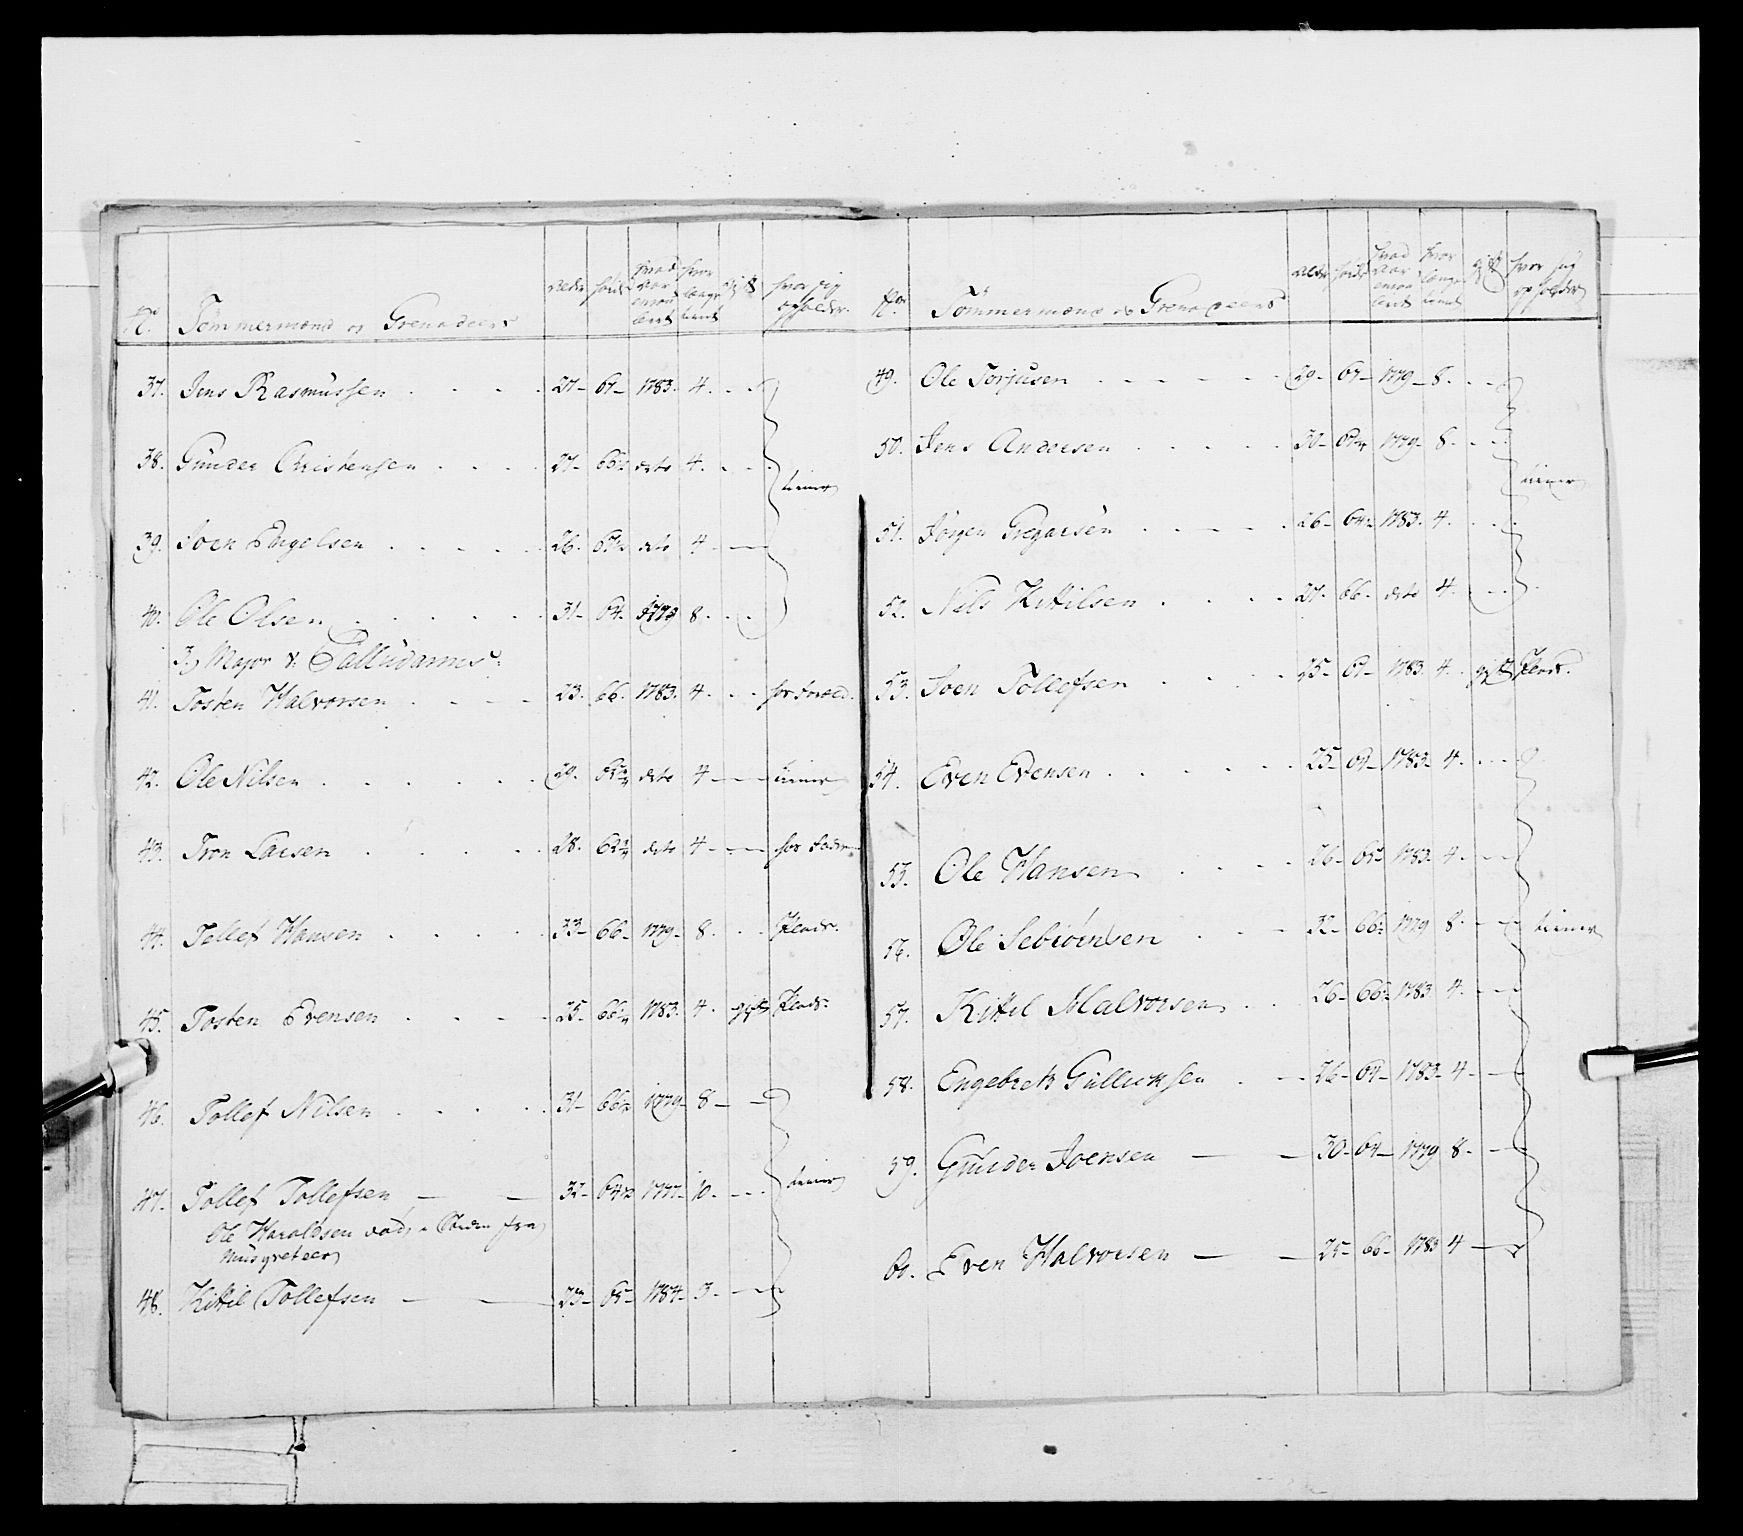 No. Tømmermænd og Grenadeers alder høide hvad aar enrolleert hvor længe tient gift hvor sig opholder.
37. Jens Rasmussen 27- 67- 1783. 4.
38. Gunder Christensen 27- dito 4. tiener
39. Joen Engelsen 26. dito 4
40. Ole Olsen 31- 64. 1779 8.
3.) Major v:
41. Tosten Halvorsen 23. 66. 1783. 4.
42. Ole Nilsen 29. dito 4 tiener
43. Iver Larsen 28. dito 4 hos
44. Tollef Hansen 33- 66- 1779- 8.
45. Tosten Evensen 25- 1783. 4. gift
46. Tollef Nilsen 31- 1779- 8
47. Tollef Tollefsen 32- 1777- 10. tiener
Ole Haraldsen fra
Musqveteer
48. Kittil Tollefsen 23- 65- 1784- 3.
No. Tømmermænd og Grenadeers alder høide hvad aar enrolleert hvor længe tient gift hvor sig opholder
49. Ole Torjusen 29- 67- 1779- 8.
50. Jens Andersen 30- 1779- 8. tiener
51. Jørgen Gregarsen 26- 1783. 4.
52. Nils Kittilsen 27. 66. dito 4.
53. Joen Tollefsen 25- 67- 1783. 4. gift
54. Even Evensen 25- 1783- 4.
55. Ole Hansen 26- 1783- 4.
56. Ole 32- 1779 8. tiener
57. Kittil Halvorsen 26- 1783. 4.
58. Engebret Gulluchsen 26- 64- 1783- 4
59. Gunder Joensen 30- 64- 1779 8.
60. Even Halvorsen 25- 66- 1783 4